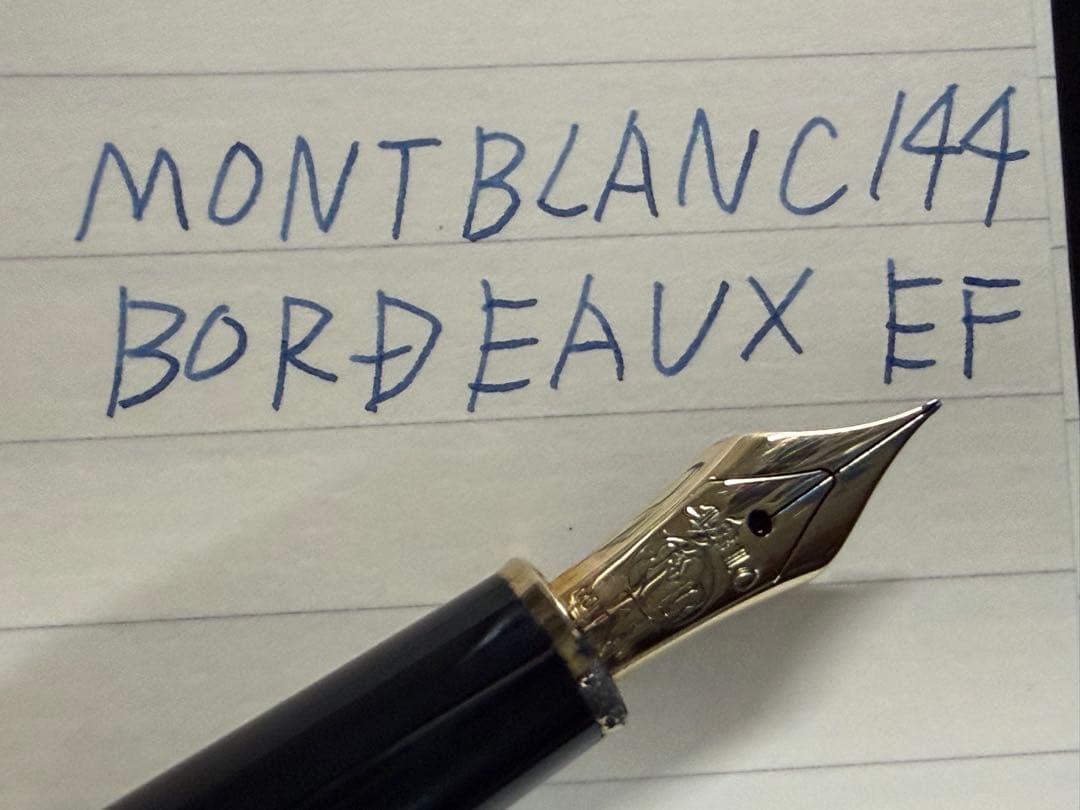 MONTBLANC 144
BORDEAUX EF